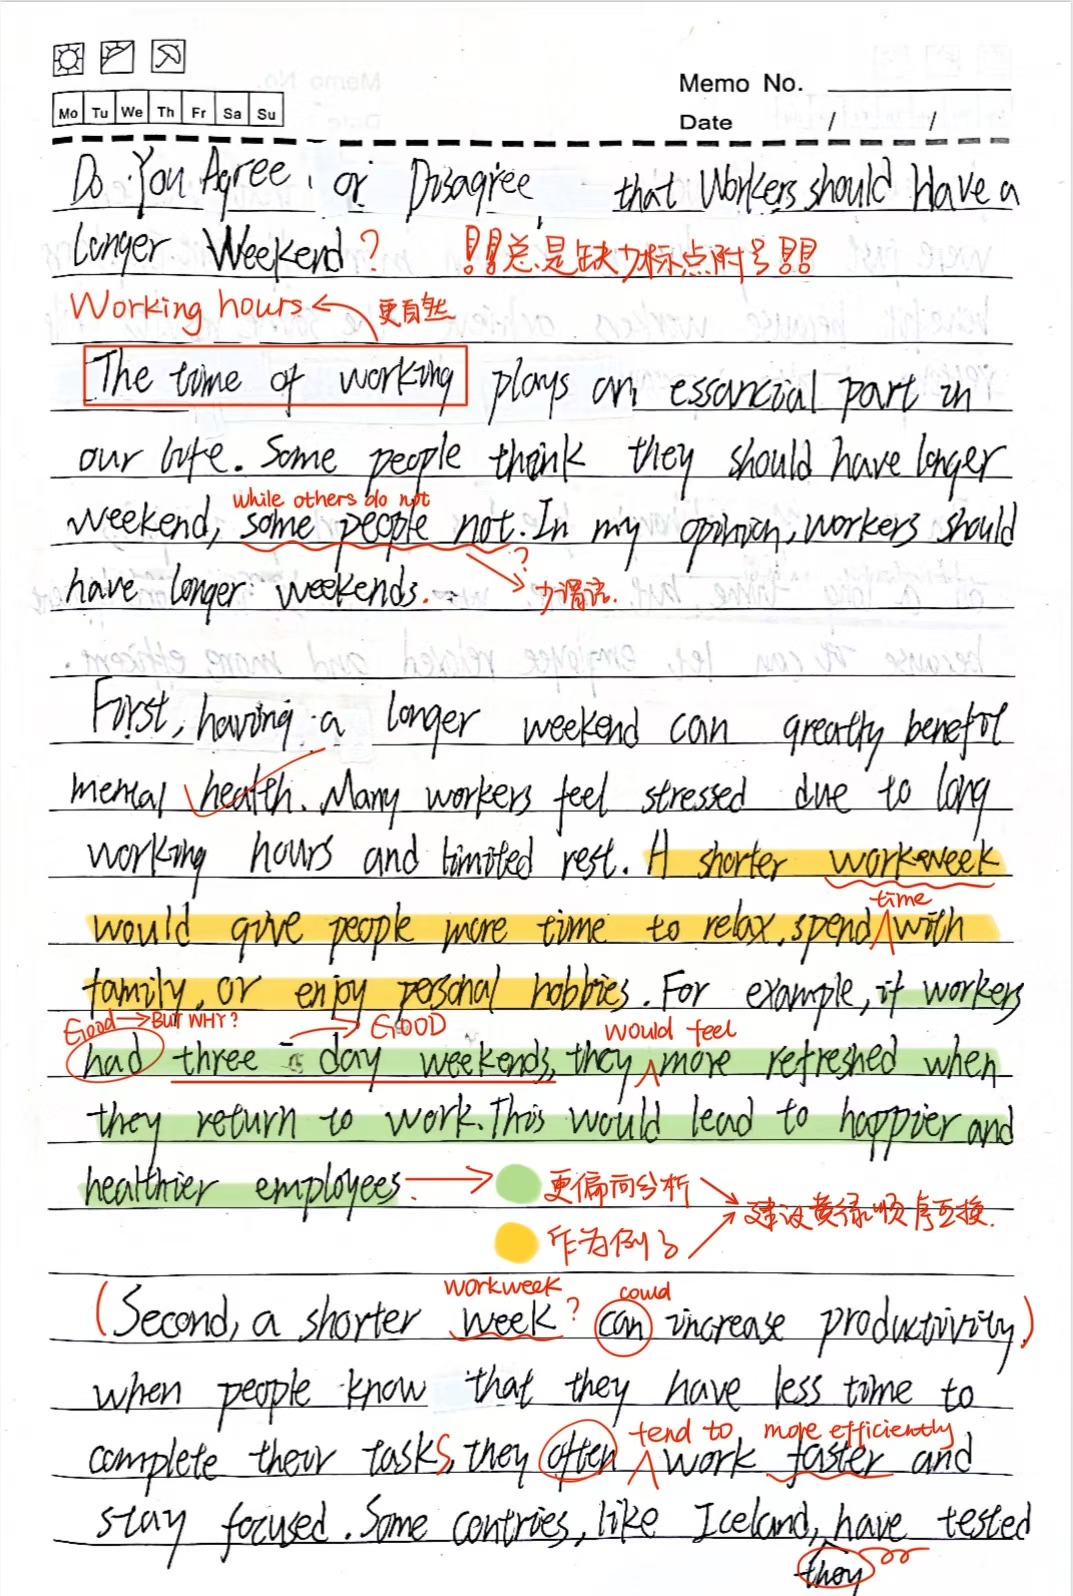 Memo No.
Mo Tu We Th Fr Sa Su
Date / /
Do You Agree or Disagree that Workers should Have a
Longer Weekend?
!!!总是缺少标点附号!!!
Working hours
更自然
The time of working plays an essancial part in
our life. Some people think they should have longer
while others do not
weekend, some people not. In my opinion, workers should
?
少谓语.
have longer weekends.
First, having a longer weekend can greatly benefit
mental health. Many workers feel stressed due to long
working hours and limited rest. A shorter workweek
time
would give people more time to relax, spend with
family, or enjoy personal hobbies. For example, if workers
Good → BUT WHY?
GOOD
would feel
had three-day weekends, they more refreshed when
they return to work. This would lead to happier and
healthier employees.
更偏向分析
建议黄绿顺序互换.
作为例子
workweek
could
(Second, a shorter week? can increase productivity,)
when people know that they have less time to
tend to
more efficiently
complete their tasks, they often work faster and
stay focused. Some contries, like Iceland, have tested
they